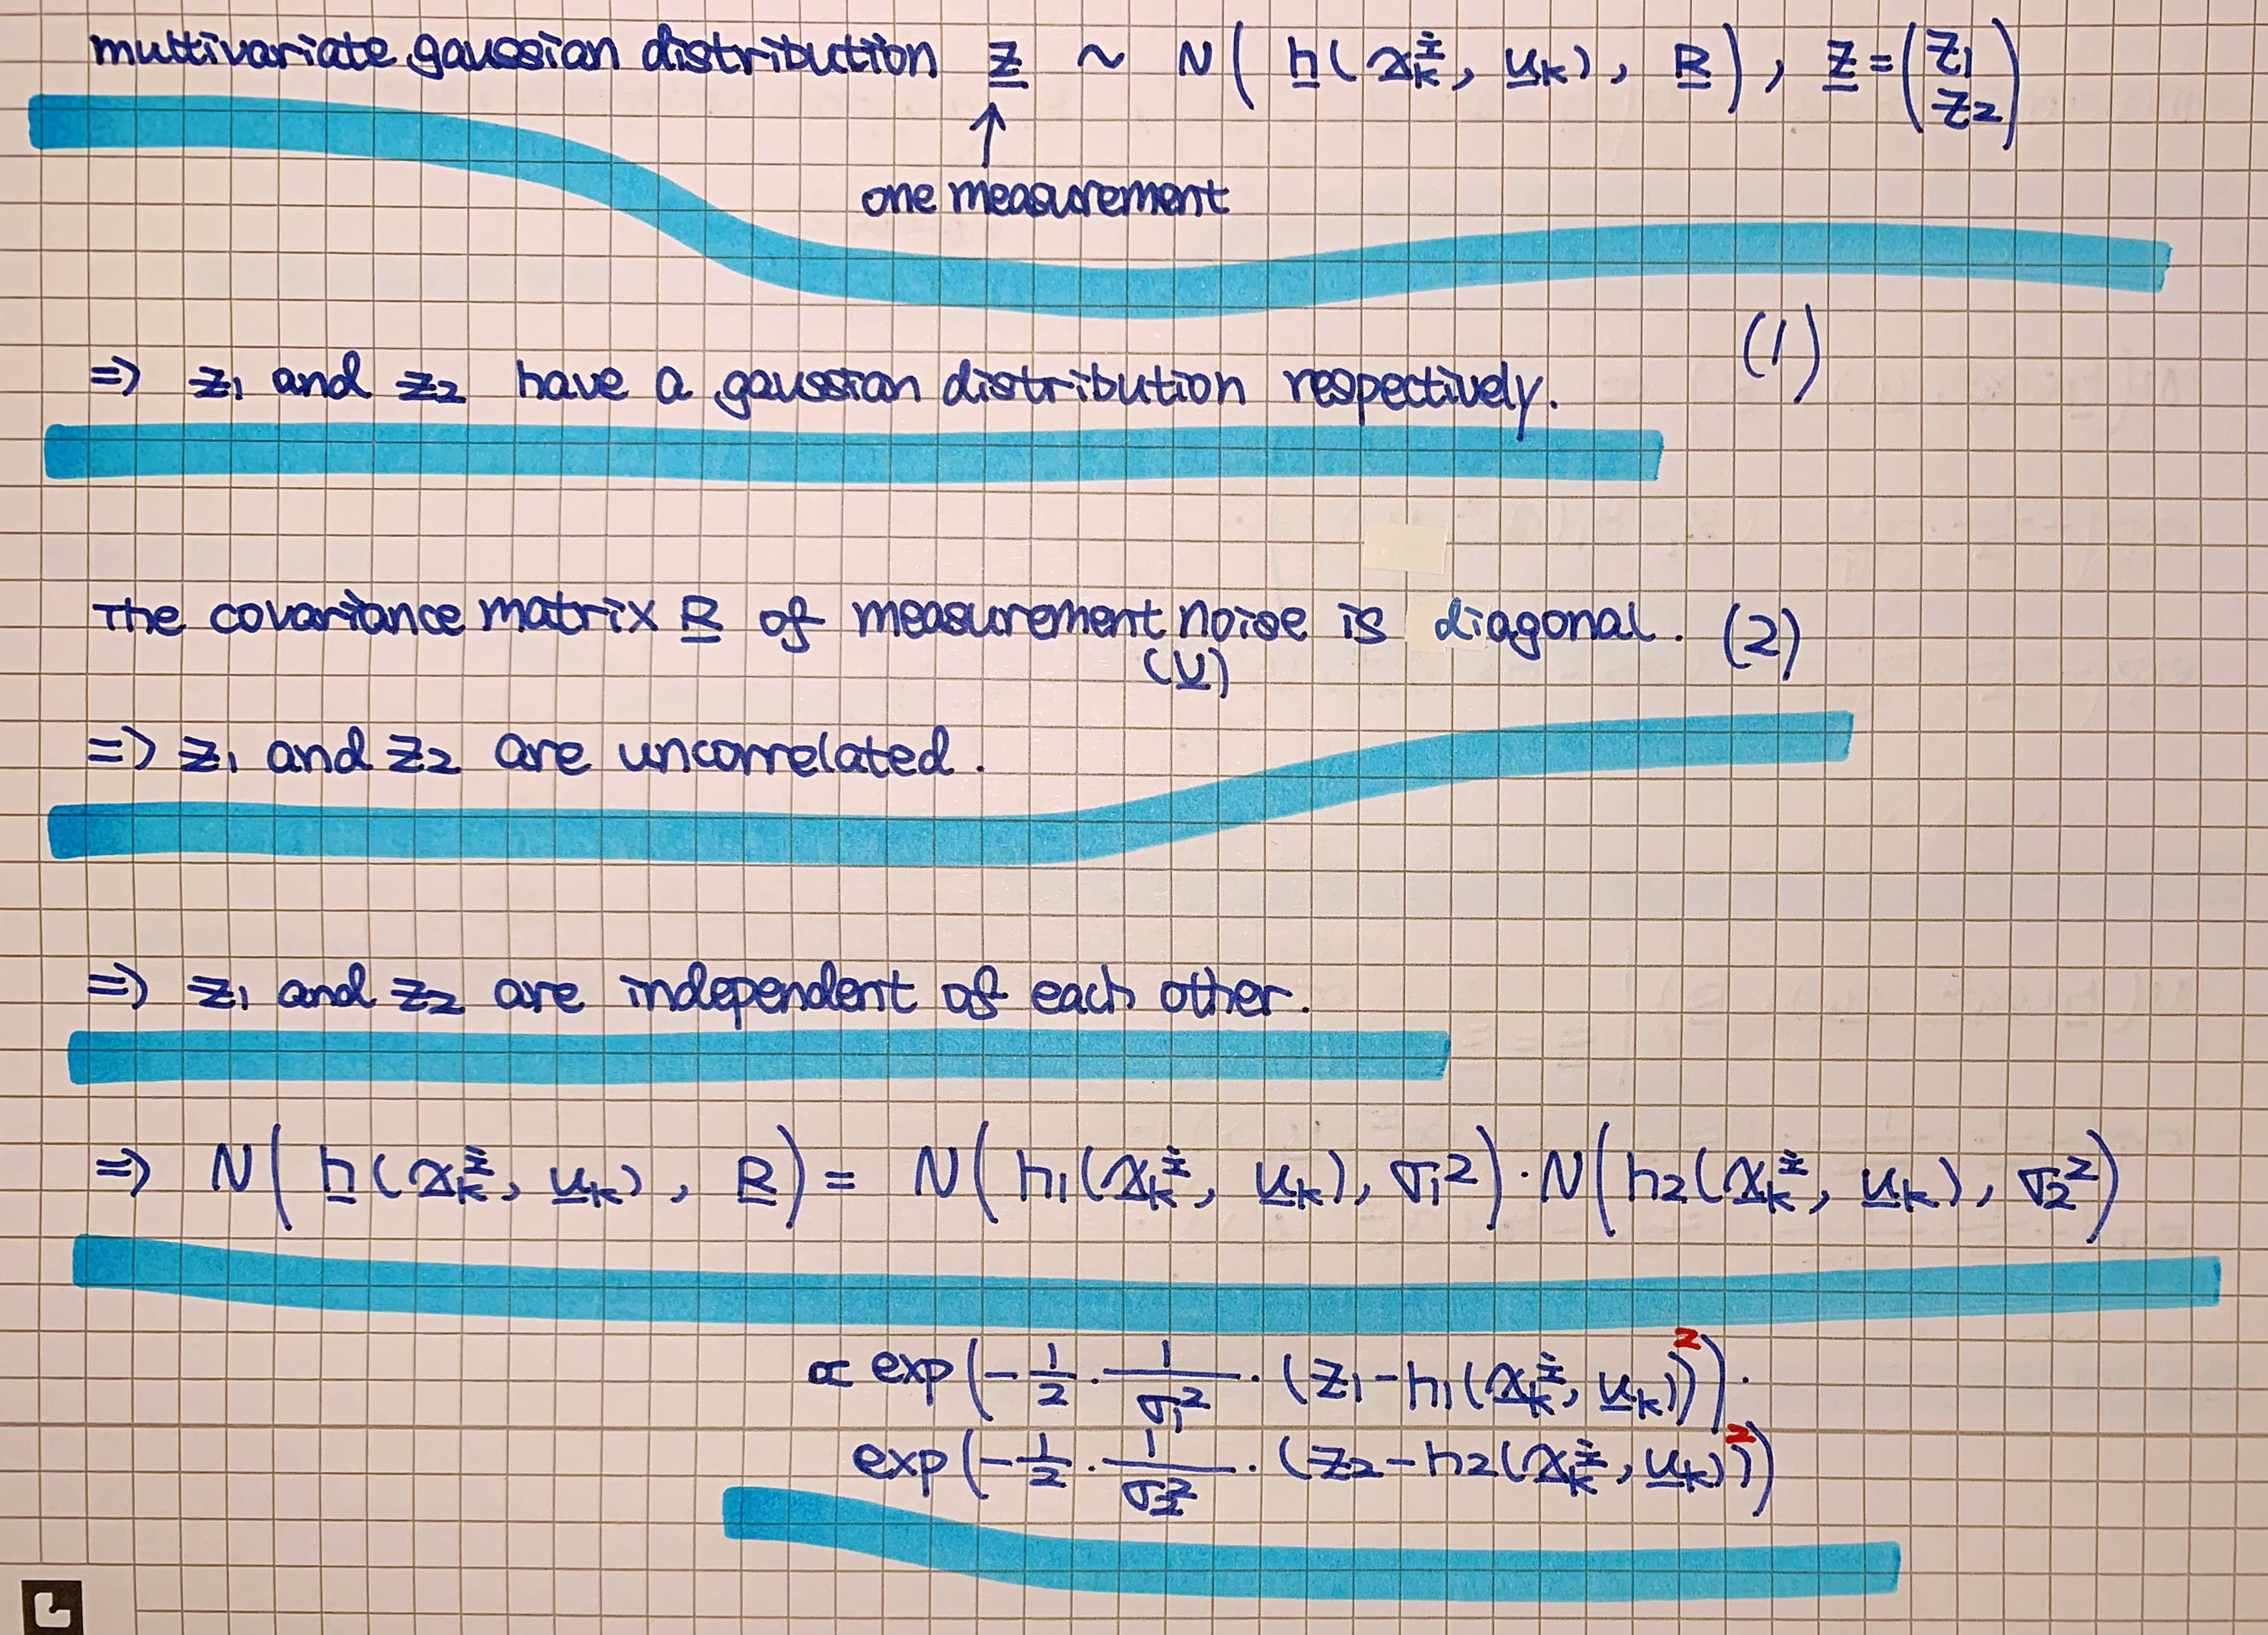 multivariate gaussian distribution z̲ ~ N( h̲(x̲ₖⁱ, u̲ₖ), R̲ ), z̲ = (z₁
z₂)
↑
one measurement
(1)
=> z₁ and z₂ have a gaussian distribution respectively.
The covariance matrix R̲ of measurement noise is diagonal. (2)
(v̲)
=> z₁ and z₂ are uncorrelated.
=> z₁ and z₂ are independent of each other.
=> N( h̲(x̲ₖⁱ, u̲ₖ), R̲ ) = N( h₁(x̲ₖⁱ, u̲ₖ), σ₁² ) · N( h₂(x̲ₖⁱ, u̲ₖ), σ₂² )
∝ exp( -1/2 · 1/σ₁² · (z₁ - h₁(x̲ₖⁱ, u̲ₖ))² ) ·
exp( -1/2 · 1/σ₂² · (z₂ - h₂(x̲ₖⁱ, u̲ₖ))² )